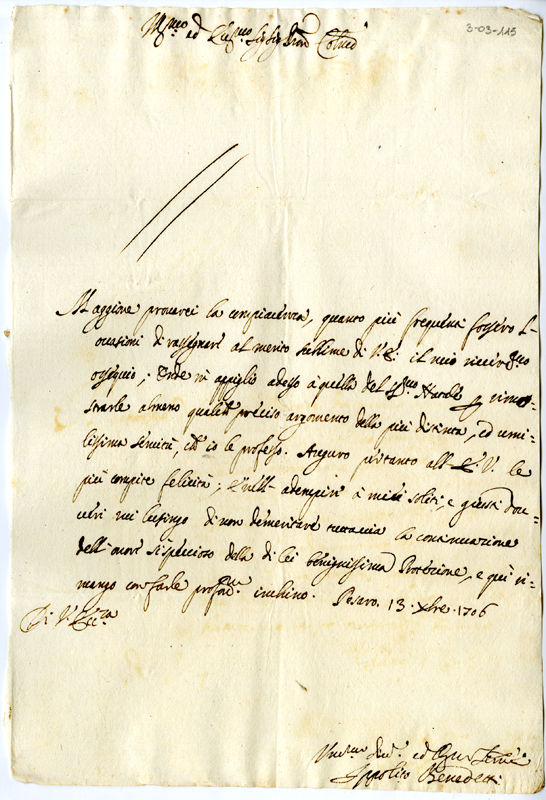 3-03-115
Ill.mo ed Ecc.mo Sig. Sig. Pron. Col.mo
Maggiore proverei la compiacenza, quanto più frequenti fossero l'-
occasioni di rassegnare al merito sublime di V.E. il mio river.mo
ossequio; Onde m'appiglio adesso à quella del S.mo Natale per rimo-
strarle almeno qualche preciso argomento della più distinta, ed umi-
lissima servitù, ch'io le professo. Auguro pertanto all' E.V. le
più compite felicità; e nell' adempire à miei soliti, e giusti dov-
veri mi lusingo di non demeritare tuttavia la continuazione
dell'onore sì specioso della di lei benignissima Protezione, e qui ri-
mango con farle prof.mo inchino. Pesaro 13 Xbre 1706
Di V. Ecc.za
Um.mo Dev.mo ed Obl. Serv.
Ippolito Benedetti